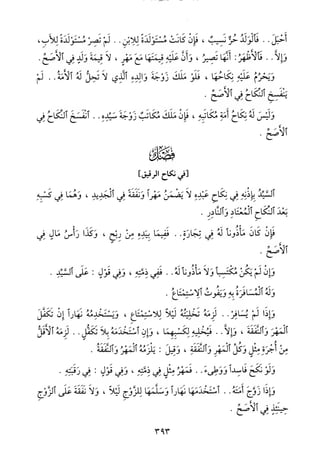 أَحْبَلَ . . فَالْوَلَدُ حُرٌّ نَسِيبٌ ، فَإِنْ كَانَتْ مُسْتَوْلَدَةً لِلاِبْنِ . . لَمْ تَصِرْ مُسْتَوْلَدَةً لِلأَبِ ،
وَإِلاَّ . . فَالأَظْهَرُ : أَنَّهَا تَصِيرُ ، وَأَنَّ عَلَيْهِ قِيمَتَهَا مَعَ مَهْرٍ ، لاَ قِيمَةَ وَلَدٍ فِي الأَصَحِّ .
وَيَحْرُمُ عَلَيْهِ نِكَاحُهَا ، فَلَوْ مَلَكَ زَوْجَةَ وَالِدِهِ الَّذِي لاَ تَحِلُّ لَهُ الأَمَةُ . . لَمْ
يَنْفَسِخِ النِّكَاحُ فِي الأَصَحِّ .
وَلَيْسَ لَهُ نِكَاحُ أَمَةِ مُكَاتَبِهِ ، فَإِنْ مَلَكَ مُكَاتَبٌ زَوْجَةَ سَيِّدِهِ . . انْفَسَخَ النِّكَاحُ فِي
الأَصَحِّ .
فَصْلٌ
[في نكاح الرقيق]
السَّيِّدُ بِإِذْنِهِ فِي نِكَاحِ عَبْدِهِ لاَ يَضْمَنُ مَهْراً وَنَفَقَةً فِي الْجَدِيدِ ، وَهُمَا فِي كَسْبِهِ
بَعْدَ النِّكَاحِ الْمُعْتَادِ وَالنَّادِرِ .
فَإِنْ كَانَ مَأْذُوناً لَهُ فِي تِجَارَةٍ . . فَفِيمَا بِيَدِهِ مِنْ رِبْحٍ ، وَكَذَا رَأْسُ مَالٍ فِي
الأَصَحِّ .
وَإِنْ لَمْ يَكُنْ مُكْتَسِباً وَلاَ مَأْذُوناً لَهُ . . فَفِي ذِمَّتِهِ ، وَفِي قَوْلٍ : عَلَى السَّيِّدِ .
وَلَهُ الْمُسَافَرَةُ بِهِ وَيَفُوتُ الاِسْتِمْتَاعُ .
وَإِذَا لَمْ يُسَافِرْ . . لَزِمَهُ تَخْلِيَتُهُ لَيْلاً لِلاِسْتِمْتَاعِ ، وَيَسْتَخْدِمُهُ نَهَاراً إِنْ تَكَفَّلَ
الْمَهْرَ وَالنَّفَقَةَ ، وَإِلاَّ . . فَيُخَلِّيهِ لِكَسْبِهِمَا ، وَإِنِ اسْتَخْدَمَهُ بِلاَ تَكَفُّلٍ . . لَزِمَهُ الأَقَلُّ
مِنْ أُجْرَةِ مِثْلٍ وَكُلِّ الْمَهْرِ وَالنَّفَقَةِ ، وَقِيلَ : يَلْزَمُهُ الْمَهْرُ وَالنَّفَقَةُ .
وَلَوْ نَكَحَ فَاسِداً وَوَطِىءَ . . فَمَهْرُ مِثْلٍ فِي ذِمَّتِهِ ، وَفِي قَوْلٍ : فِي رَقَبَتِهِ .
وَإِذَا زَوَّجَ أَمَتَهُ . . اسْتَخْدَمَهَا نَهَاراً وَسَلَّمَهَا لِلزَّوْجِ لَيْلاً ، وَلاَ نَفَقَةَ عَلَى الزَّوْجِ
حِينَئِذٍ فِي الأَصَحِّ .
٣٩٣